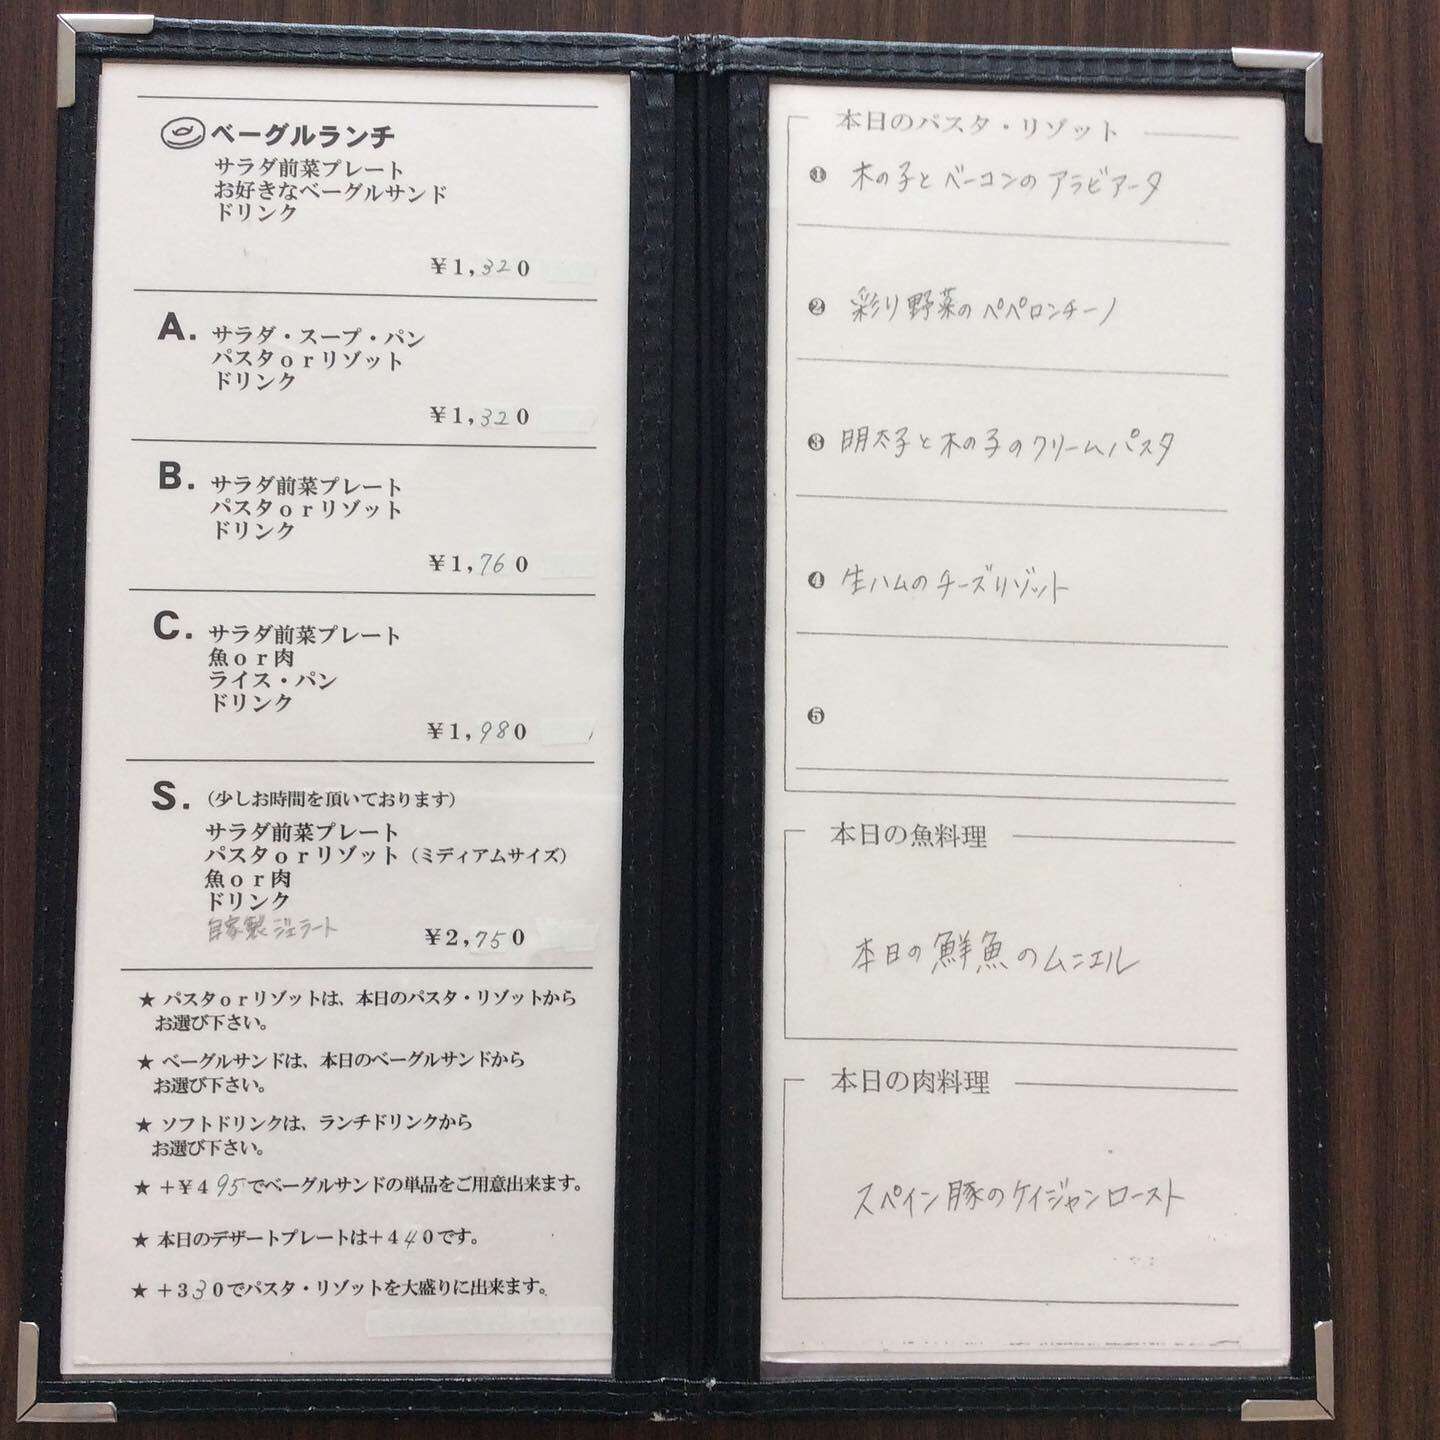 ベーグルランチ
サラダ前菜プレート
お好きなベーグルサンド
ドリンク
¥1,320
A. サラダ・スープ・パン
パスタorリゾット
ドリンク
¥1,320
B. サラダ前菜プレート
パスタorリゾット
ドリンク
¥1,760
C. サラダ前菜プレート
魚or肉
ライス・パン
ドリンク
¥1,980
S. (少しお時間を頂いております)
サラダ前菜プレート
パスタorリゾット(ミディアムサイズ)
魚or肉
ドリンク
自家製ジェラート
¥2,750
★ パスタorリゾットは、本日のパスタ・リゾットから
お選び下さい。
★ ベーグルサンドは、本日のベーグルサンドから
お選び下さい。
★ ソフトドリンクは、ランチドリンクから
お選び下さい。
★ +¥495でベーグルサンドの単品をご用意出来ます。
★ 本日のデザートプレートは+440です。
★ +330でパスタ・リゾットを大盛りに出来ます。
本日のパスタ・リゾット
❶ 木の子とベーコンのアラビアータ
❷ 彩り野菜のペペロンチーノ
❸ 明太子と木の子のクリームパスタ
❹ 生ハムのチーズリゾット
❺
本日の魚料理
本日の鮮魚のムニエル
本日の肉料理
スペイン豚のケイジャンロースト